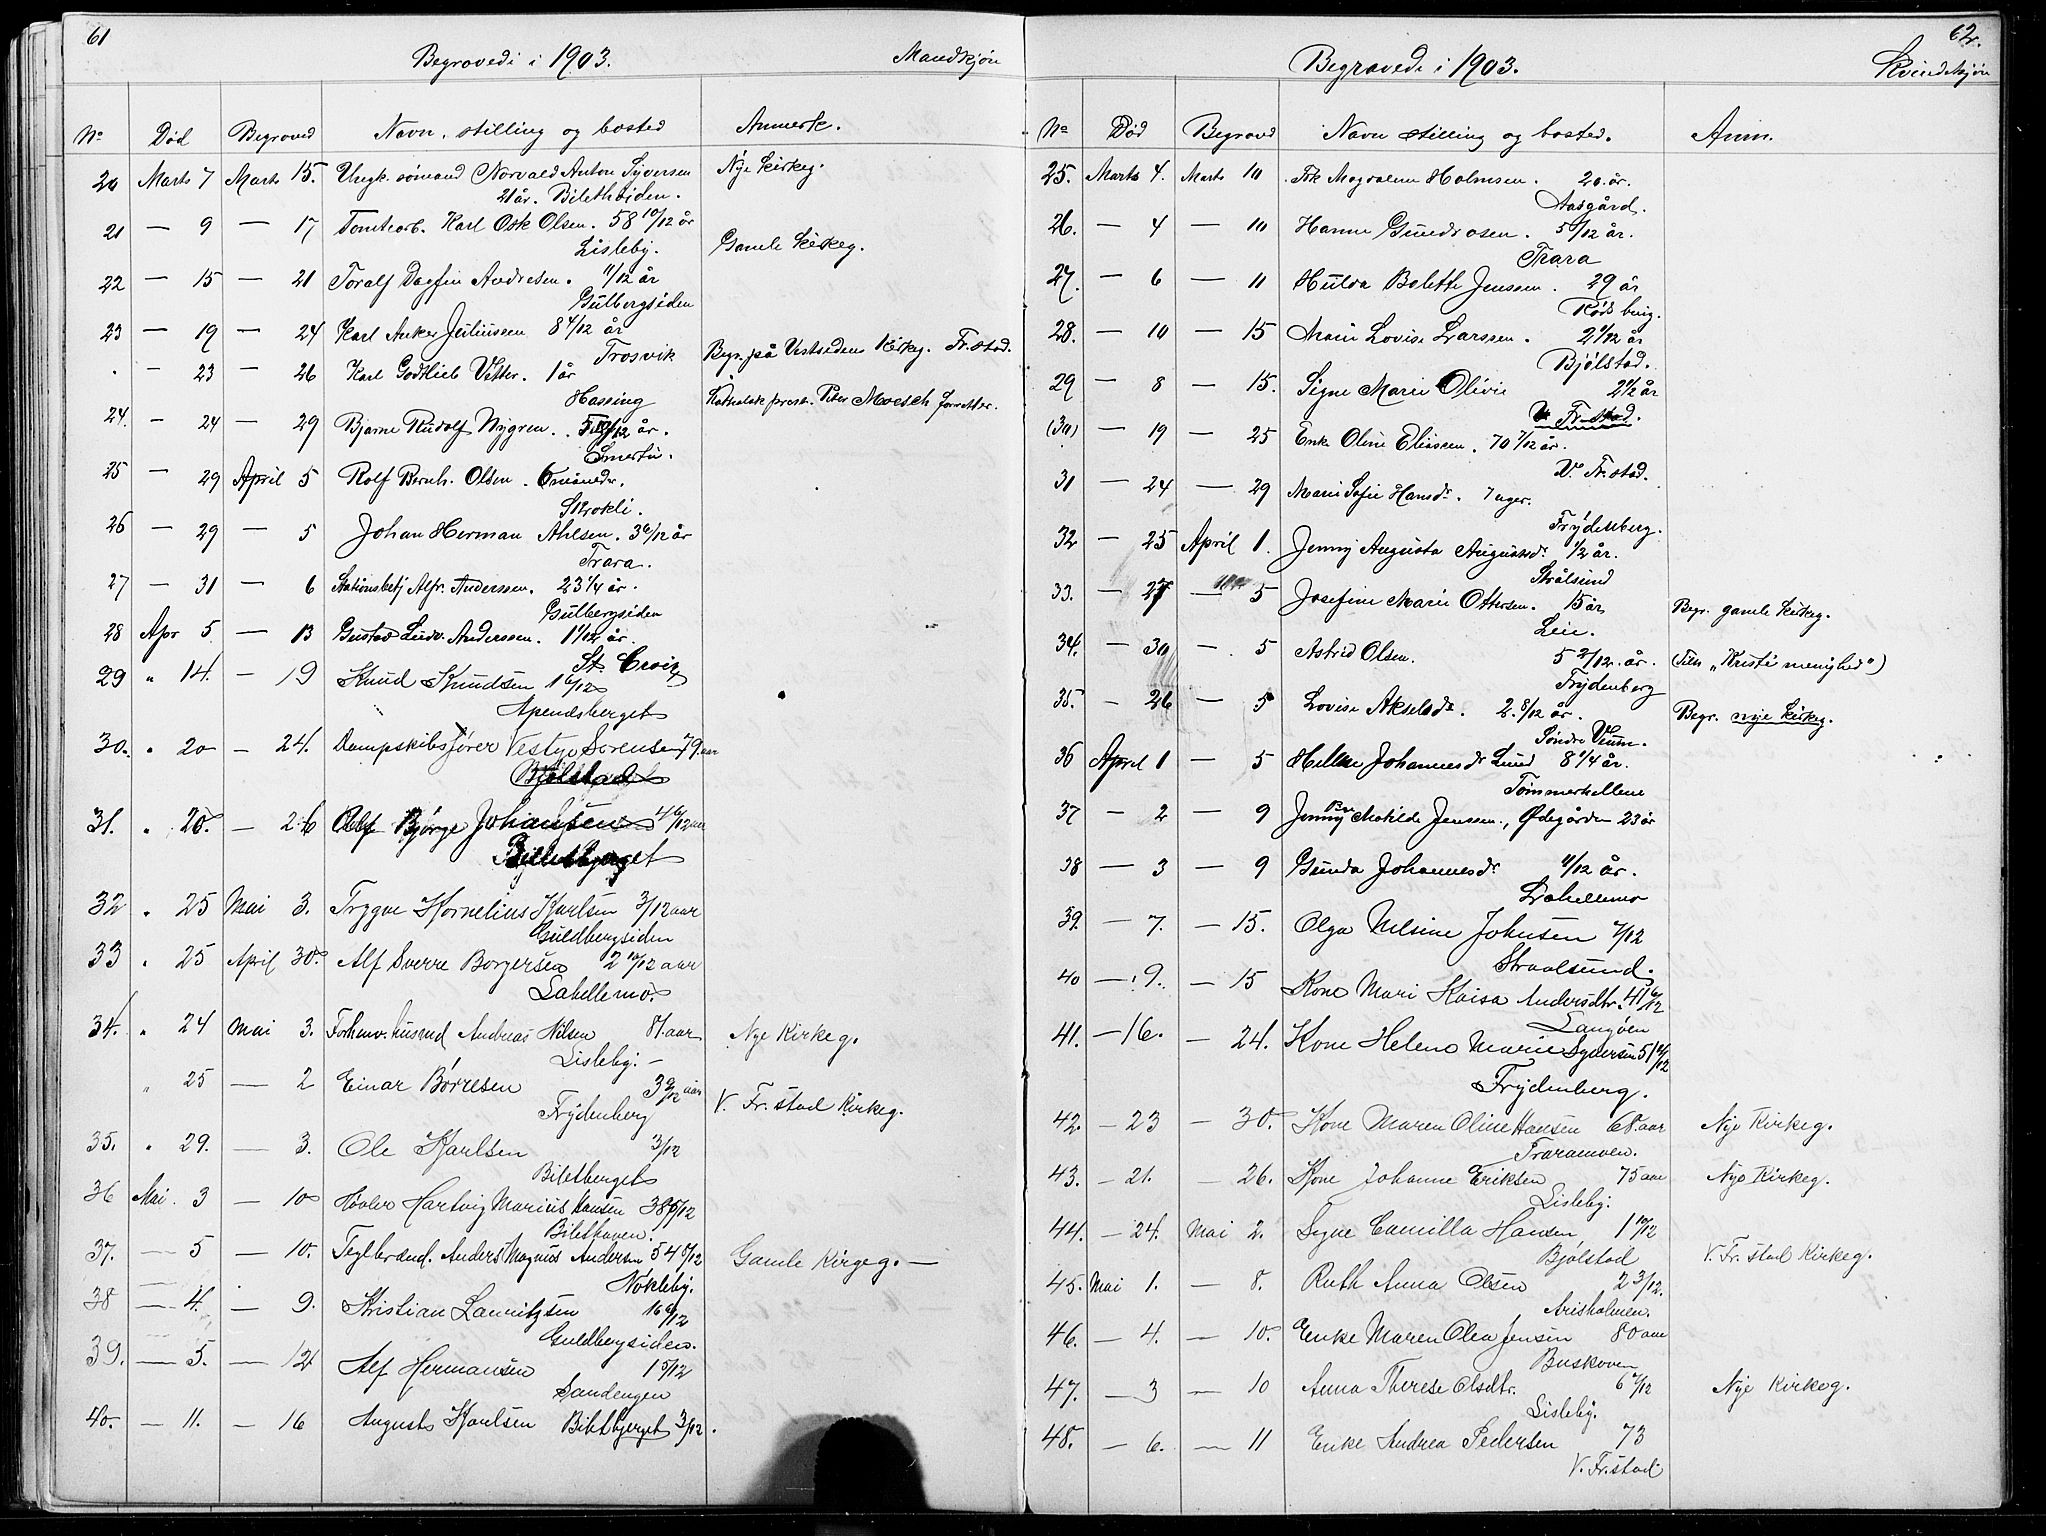 61
Begravede i 1903. Mandkjøn
No Død Begraved Navn, stilling og bosted Anmerk.
20 Marts 7 Marts 15. Ungk. sømand Norvald Anton Syversen Nye kirkeg.
21 år. Bilethøiden.
21 — 9 — 17 Tomtearb. Karl Osk Olsen. 58 10/12 år
Lisleby. Gamle kirkeg.
22 — 15 — 21 Toralf Dagfin Andresen. 11/12 år
Gulbergsiden
23 — 19 — 24 Karl Anker Juliussen 8 4/12 år
Trosvik Begr. på Vestsidens kirkeg. Fr.stad.
. — 23 — 26 Karl Godtlieb Vetter. 1 år
Hassing Katholsk prest Peter Moesch forretter.
24. — 24 — 29 Bjarne Rudolf Nygren. år.
Smertu.
25 — 29 April 5 Rolf Bernh. Olsen. 6 måneder.
26 — 29 — 5 Johan Herman Ahlsen. 3 6/12 år
Trara.
27 — 31 — 6 Stationsbetj Alfr. Anderssen. 23 1/4 år.
Gulbergsiden
28 Apr 5 — 13 Gustav Ludv. Anderssen. 1 1/12 år.
St. Croix
29 " 14. — 19 Knud Knudsen 1 6/12
Apenæsberget
30. " 20 — 24. Dampskibsfører Vestye Sørensen 79 aar
Bjølstad
31. " 20. — 26 Bjørge Johansen 4 6/12 aar
Biletbjerget
32 " 25 Mai 3. Trygve Kornelius Karlsen 3/12 aar
Guldbergsiden
33 " 25 April 30. Alf Sverre Borgersen 2 10/12 aar
Labellemo.
34. " 24 Mai 3. Forhenv. husmd Andreas Nilsen 87. aar Nye Kirkeg.
Lisleby. —
" 25 — 2 Einar Børresen 3 9/12 aar
Frydenberg V. Fr. stad Kirkeg.
35. " 29. — 3. Ole Karlsen 3/12
Biletberget
36 Mai 3 — 10 Høvler Hartvig Marius Hansen 38 5/12
Bilethaven.
37. — 5 — 10. Teglbrænd. Anders Magnus Andersen 54 5/12 Gamle Kirgeg. —
Nøkleby.
38 — 4. — 9. Kristian Lauritzsen 16 6/12
Guldbergsiden.
39. — 5. — 12 Alf Hermansen 1 5/12
Sandengen
40. — 11. — 16 August Karlsen Biletbjerget 3/12.
62.
Begravede i 1903. Kvindekjøn
No Død Begraved Navn stilling og bosted. Anm.
25. Marts 4. Marts 10 Frk Magdalene Holmsen. 20. år.
Aasgård.
26. — 4 — 10 Hanne Gundrosen. 5/12 år.
Trara
27. — 6 — 11 Hulda Bolette Jenssen. 29 år
28. — 10 — 15 Marie Lovise Larssen. 2 1/12 år
Bjølstad.
29 — 8 — 15. Signe Marie Olivie 2 1/2 år
V. Fr. stad.
(30) — 19 — 25 Enke Oline Eliassen. 70 7/12 år.
V. Fr. stad.
31 — 24 — 29 Marie Sofie Hansdr. 7 uger.
Frydenberg.
32 — 25 April 1. Jenny Augusta Augustsdr. 1/2 år.
Strålsund
33. — 27 — 5 Josefine Marie Ottersen. 15 år Begr. gamle kirkeg.
Leie.
34. — 30 — 5 Astrid Olsen. 5 2/12. år. (Tilh „Kristi menighed")
Frydenberg
35. — 26 — 5 Lovise Akselsdr. 2. 8/12 år. Begr. nye kirkeg.
Søndre Veum.
36 April 1 — 5 Helene Johannesdr Lund 8 1/4 år.
Tømmerhellene
37 — 2 — 9 Jenny Matilde Jenssen., Ødegården 23 år
38 — 3 — 9 Gunda Johannesdr 11/12 år.
Labellemo
39. — 7. — 15. Olga Nelsine Johnsen 7/12
Straalsund.
40 — 9. — 15 Kone Mari Kaisa Andersdtr. 41 6/12
Langøen
41. — 16. — 24. Kone Helene Marie Syversen 51 11/12
Frydenberg.
42. — 23 — 30. Kone Maren Oline Hansen 68. aar Nye Kirkeg.
Traramoen.
43. — 21. — 26. Kone Johanne Eriksen 75 aar Nye Kirkeg.
Lisleby.
44. — 24. Mai 2. Signe Camilla Hansen, 1 10/12
Bjølstad V. Fr. stad Kirkeg.
45. Mai 1. — 8. Ruth Anna Olsen 2 3/12.
Arisholmen.
46. — 4. — 10. Enke Maren Olea Jensen 80 aar
Buskoven
47. — 3 — 10 Anna Therese Olsdtr. 6 7/12 Nye Kirkeg.
Lisleby.
48. — 6. — 11 Enke Andrea Pedersen 73
V. Fr. stad.